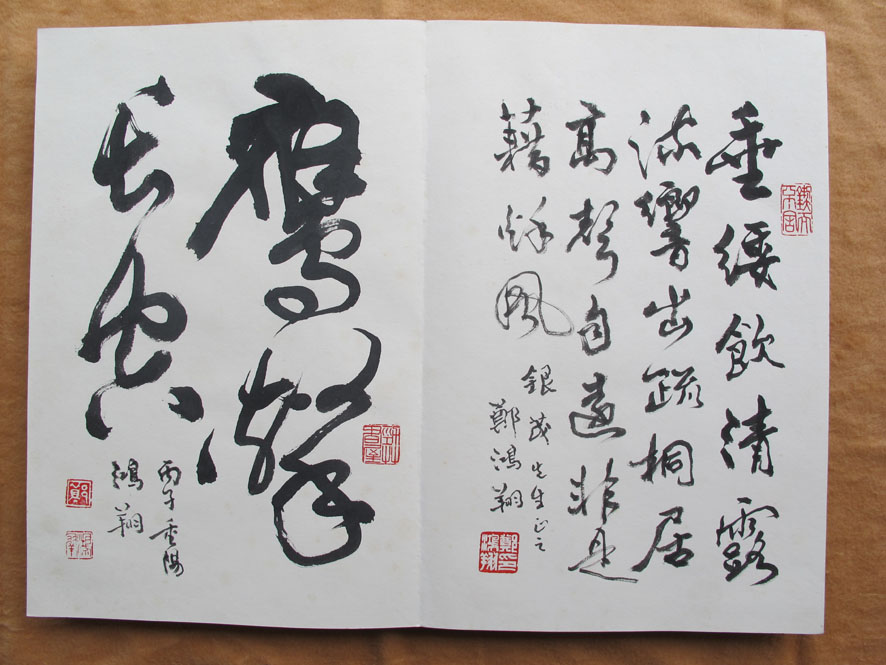 垂緌飲清露
流響出疏桐居
高聲自遠非是
藉秌風
銀茂先生正之
鄭鴻翔
鄭印鴻翔
鷹擊
長空
丙子重陽
鴻翔
鄭